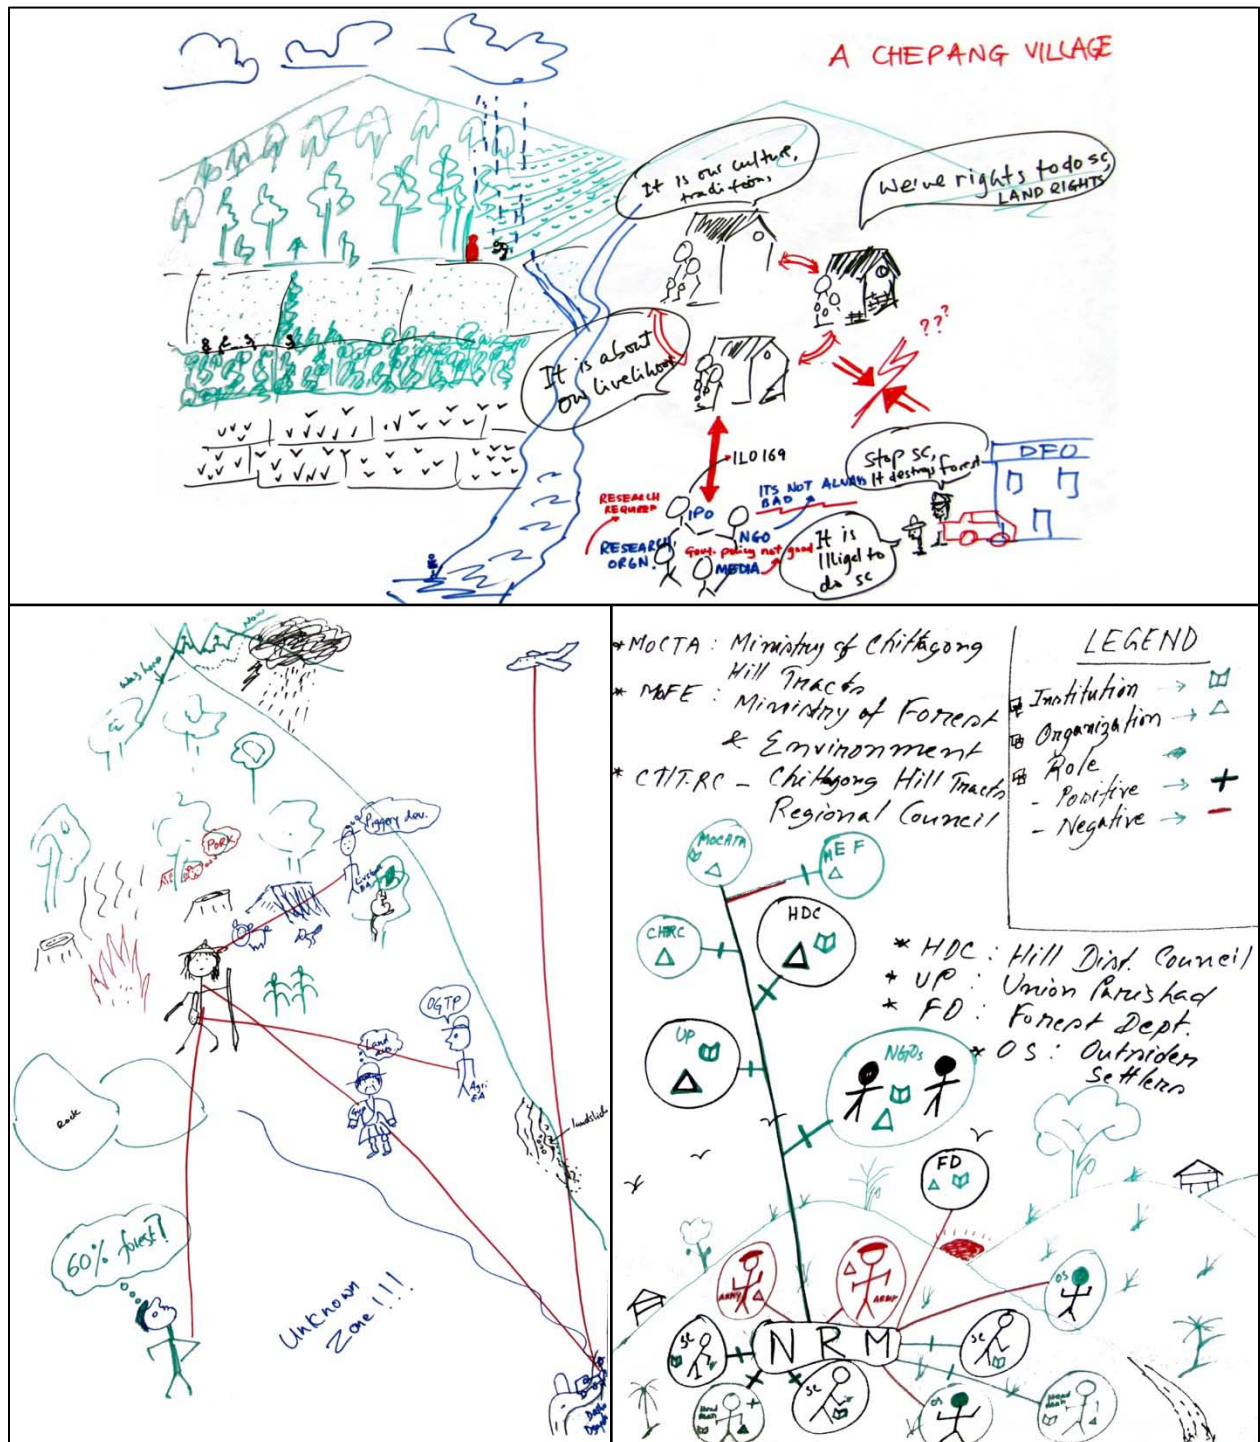 A CHEPANG VILLAGE
It is our culture,
tradition,
We've rights to do sc,
LAND RIGHTS
It is about
our livelihood
???
ILO 169
Stop sc,
It destroys forest
DFO
RESEARCH
REQUIRED
ITS NOT ALWAYS
BAD
IPO
NGO
RESEARCH
ORGN.
Govt. policy not good
MEDIA
It is
Illigel to
do sc
Now
was here
PORK
Piggery dev.
OGTP
Agri
EA
Land
Rock
landslide
60% forest?
Unknown
Zone!!!
* MoCTA : Ministry of Chittagong
Hill Tracts
* MoFE : Ministry of Forest
& Environment
* CTIT.RC - Chittagong Hill Tracts
Regional Council
LEGEND
Institution →
Organization →
Role
- Positive → +
- Negative → -
MOCATA
MEF
CHTRC
HDC
* HDC : Hill Dist. Council
* UP : Union Parishad
* FD : Forest Dept.
* OS : Outsider
Settlers
UP
NGOs
FD
ARMY
ARMY
OS
SC
NRM
SC
Head
man
SC
OS
Head
man